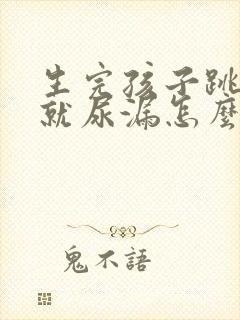 生完孩子跳
就尿漏怎麼
鬼不語